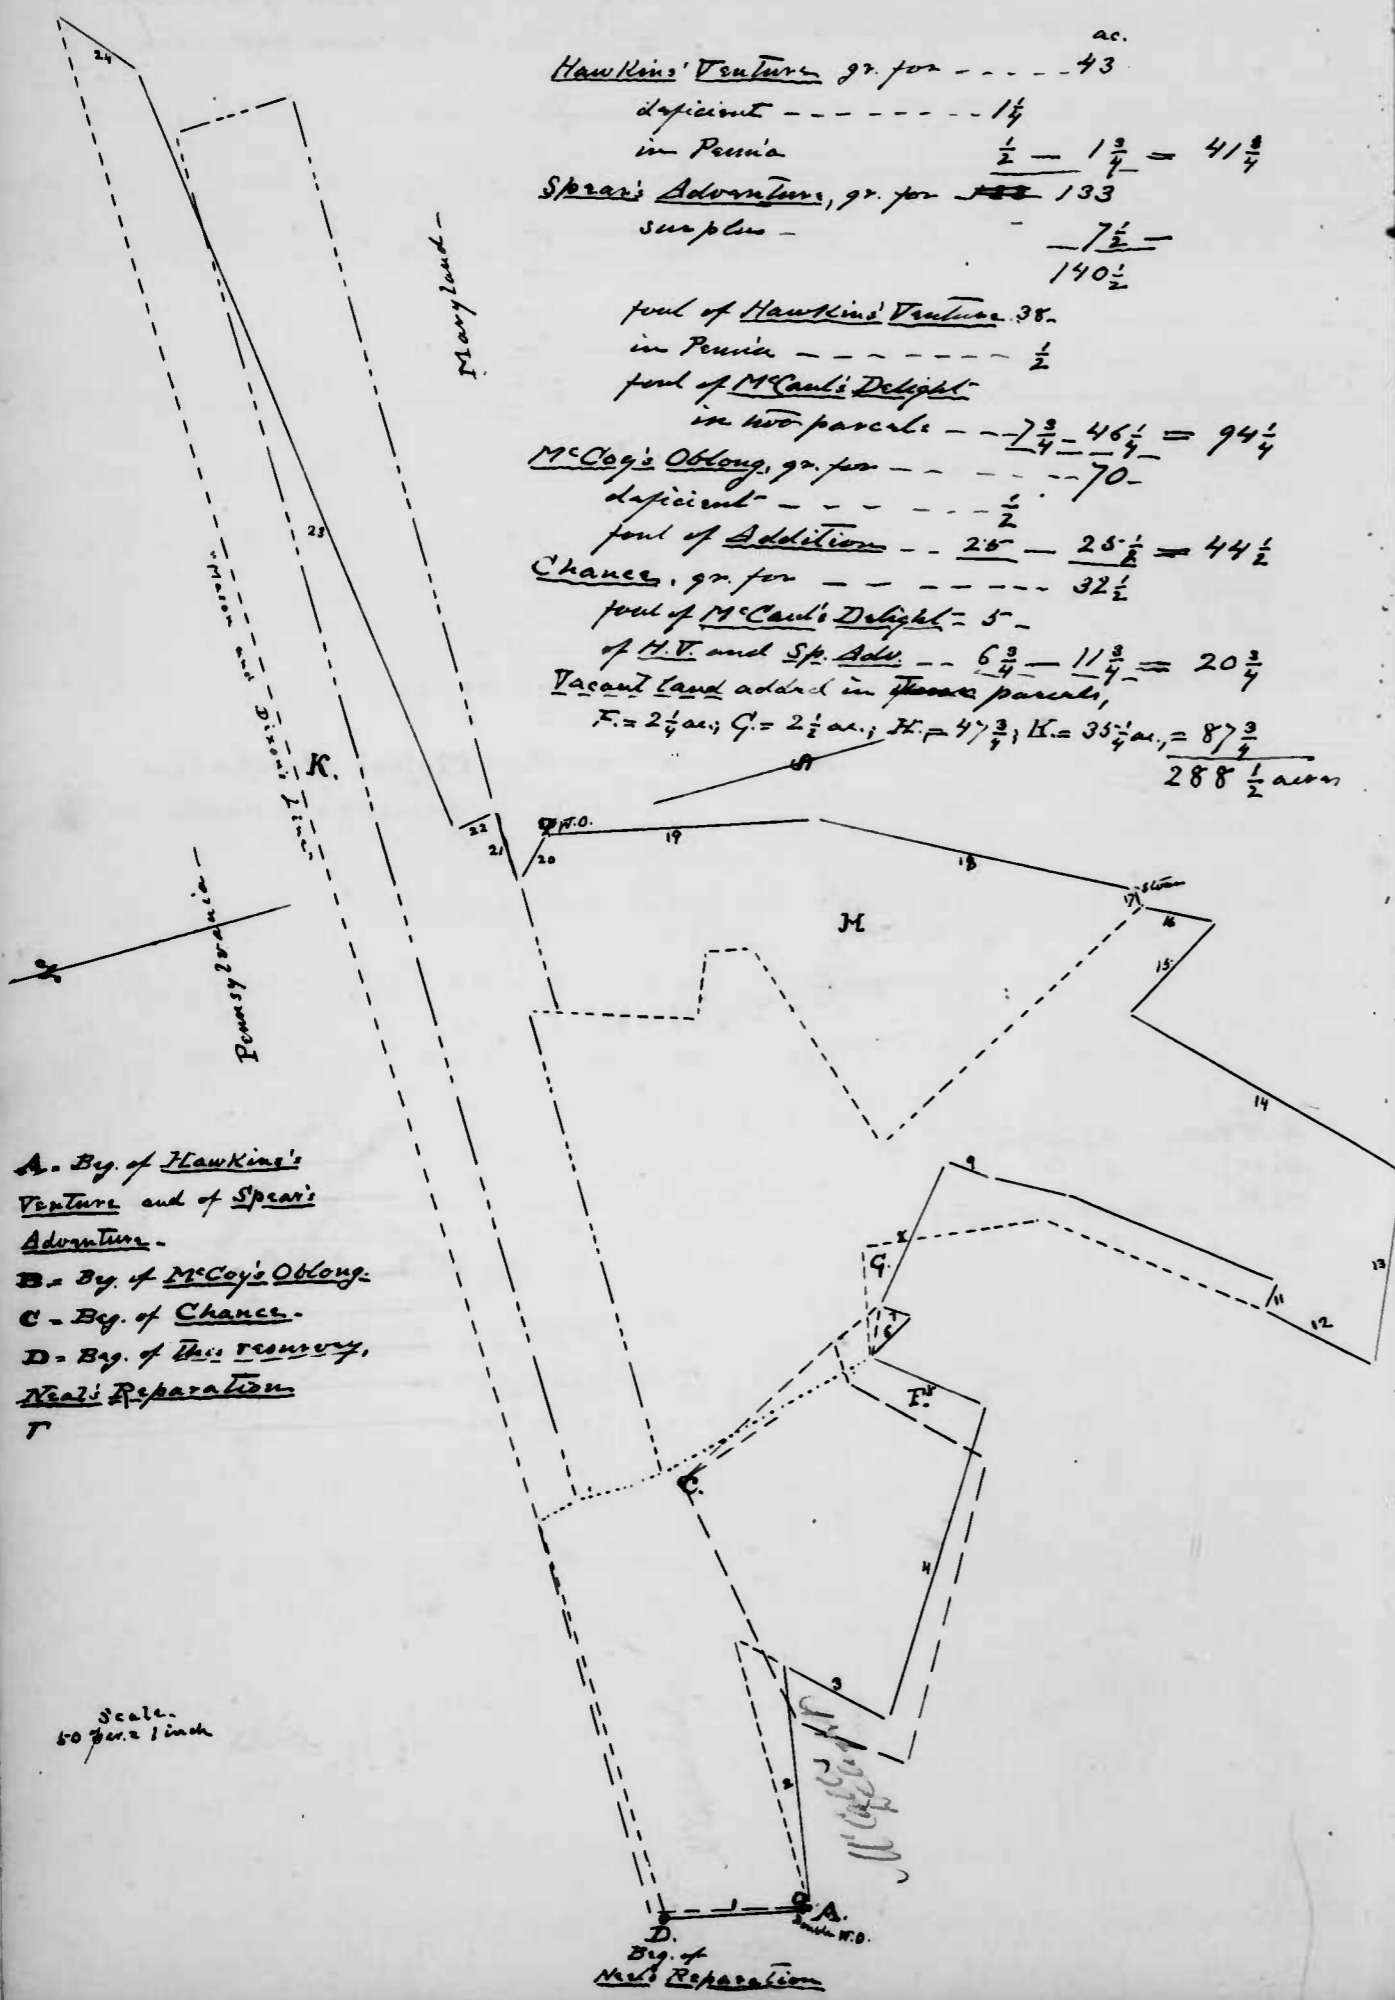 ac.
Hawkins' Venture gr. for - - - - - 43
deficient - - - - - - - - 1 1/4
in Penn'a 1/2 — 1 3/4 = 41 1/4
Spear's Adventure, gr. for 133
surplus - - 7 1/2 -
140 1/2
foul of Hawkins' Venture 38-
in Penn'a - - - - - - - 1/2
foul of McCaul's Delight
in two parcels - - - 7 3/4 - 46 1/4 = 94 1/4
McCoy's Oblong, gr. for - - - - - 70-
deficient - - - - - - 1/2
foul of Addition - - 25 — 25 1/2 = 44 1/2
Chance, gr. for - - - - - - 32 1/2
foul of McCaul's Delight = 5 -
of H.V. and Sp. Adv. - - 6 3/4 — 11 3/4 = 20 3/4
Vacant land added in parcels,
F. = 2 1/4 ac.; G. = 2 1/2 ac.; H. = 47 3/4; K. = 35 1/4 ac., = 87 3/4
288 1/2 acres
24
Maryland-
23
Mason and Dixon's Line
K.
S
22
21
20
W.O.
19
18
17
stone
16
15
H
Pennsylvania-
14
13
9
8
G.
11
12
7
6
F.
5
C.
4
3
2
A = Beg. of Hawkins's
Venture and of Spear's
Adventure.
B = Beg. of McCoy's Oblong.
C - Beg. of Chance.
D = Beg. of this resurvey,
Neal's Reparation
Scale.
50 per. = 1 inch
1
A.
Double W.O.
D.
Beg. of
Neal's Reparation